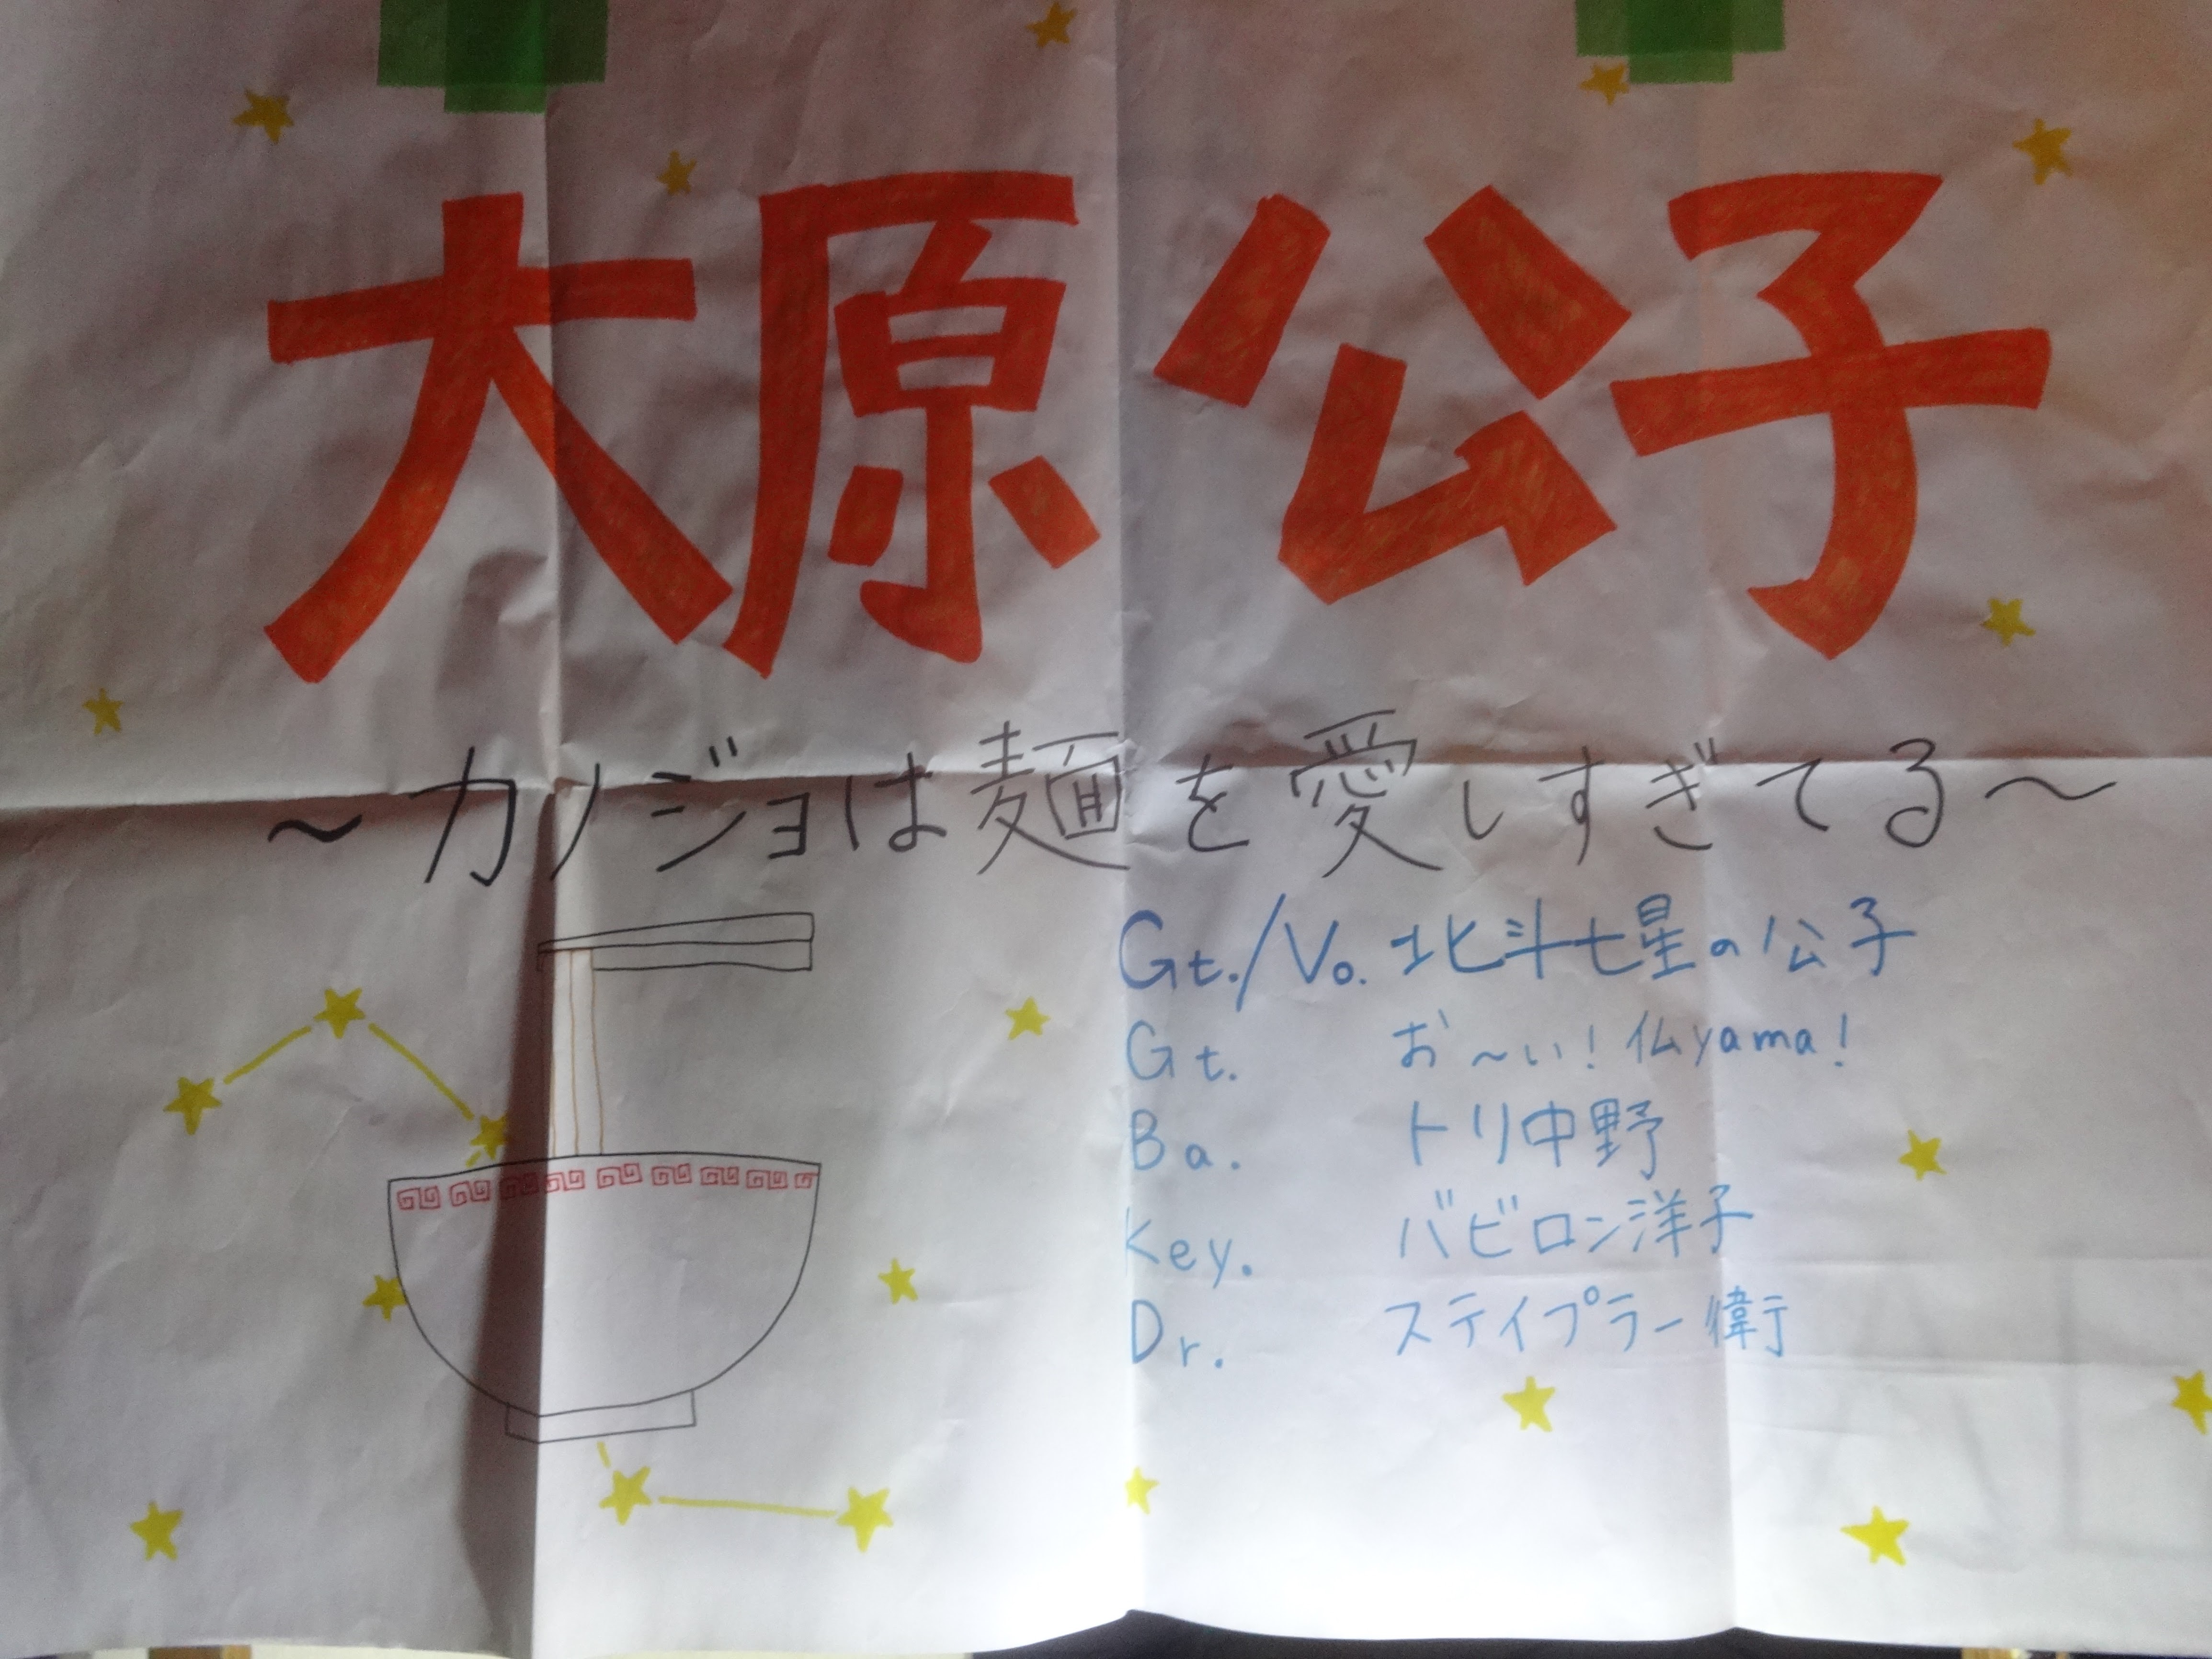 大原公子
～カノジョは麺を愛しすぎてる～
Gt./Vo. 北斗七星の公子
Gt. お～い!仏yama!
Ba. トリ中野
Key. バビロン洋子
Dr. ステイプラー衛